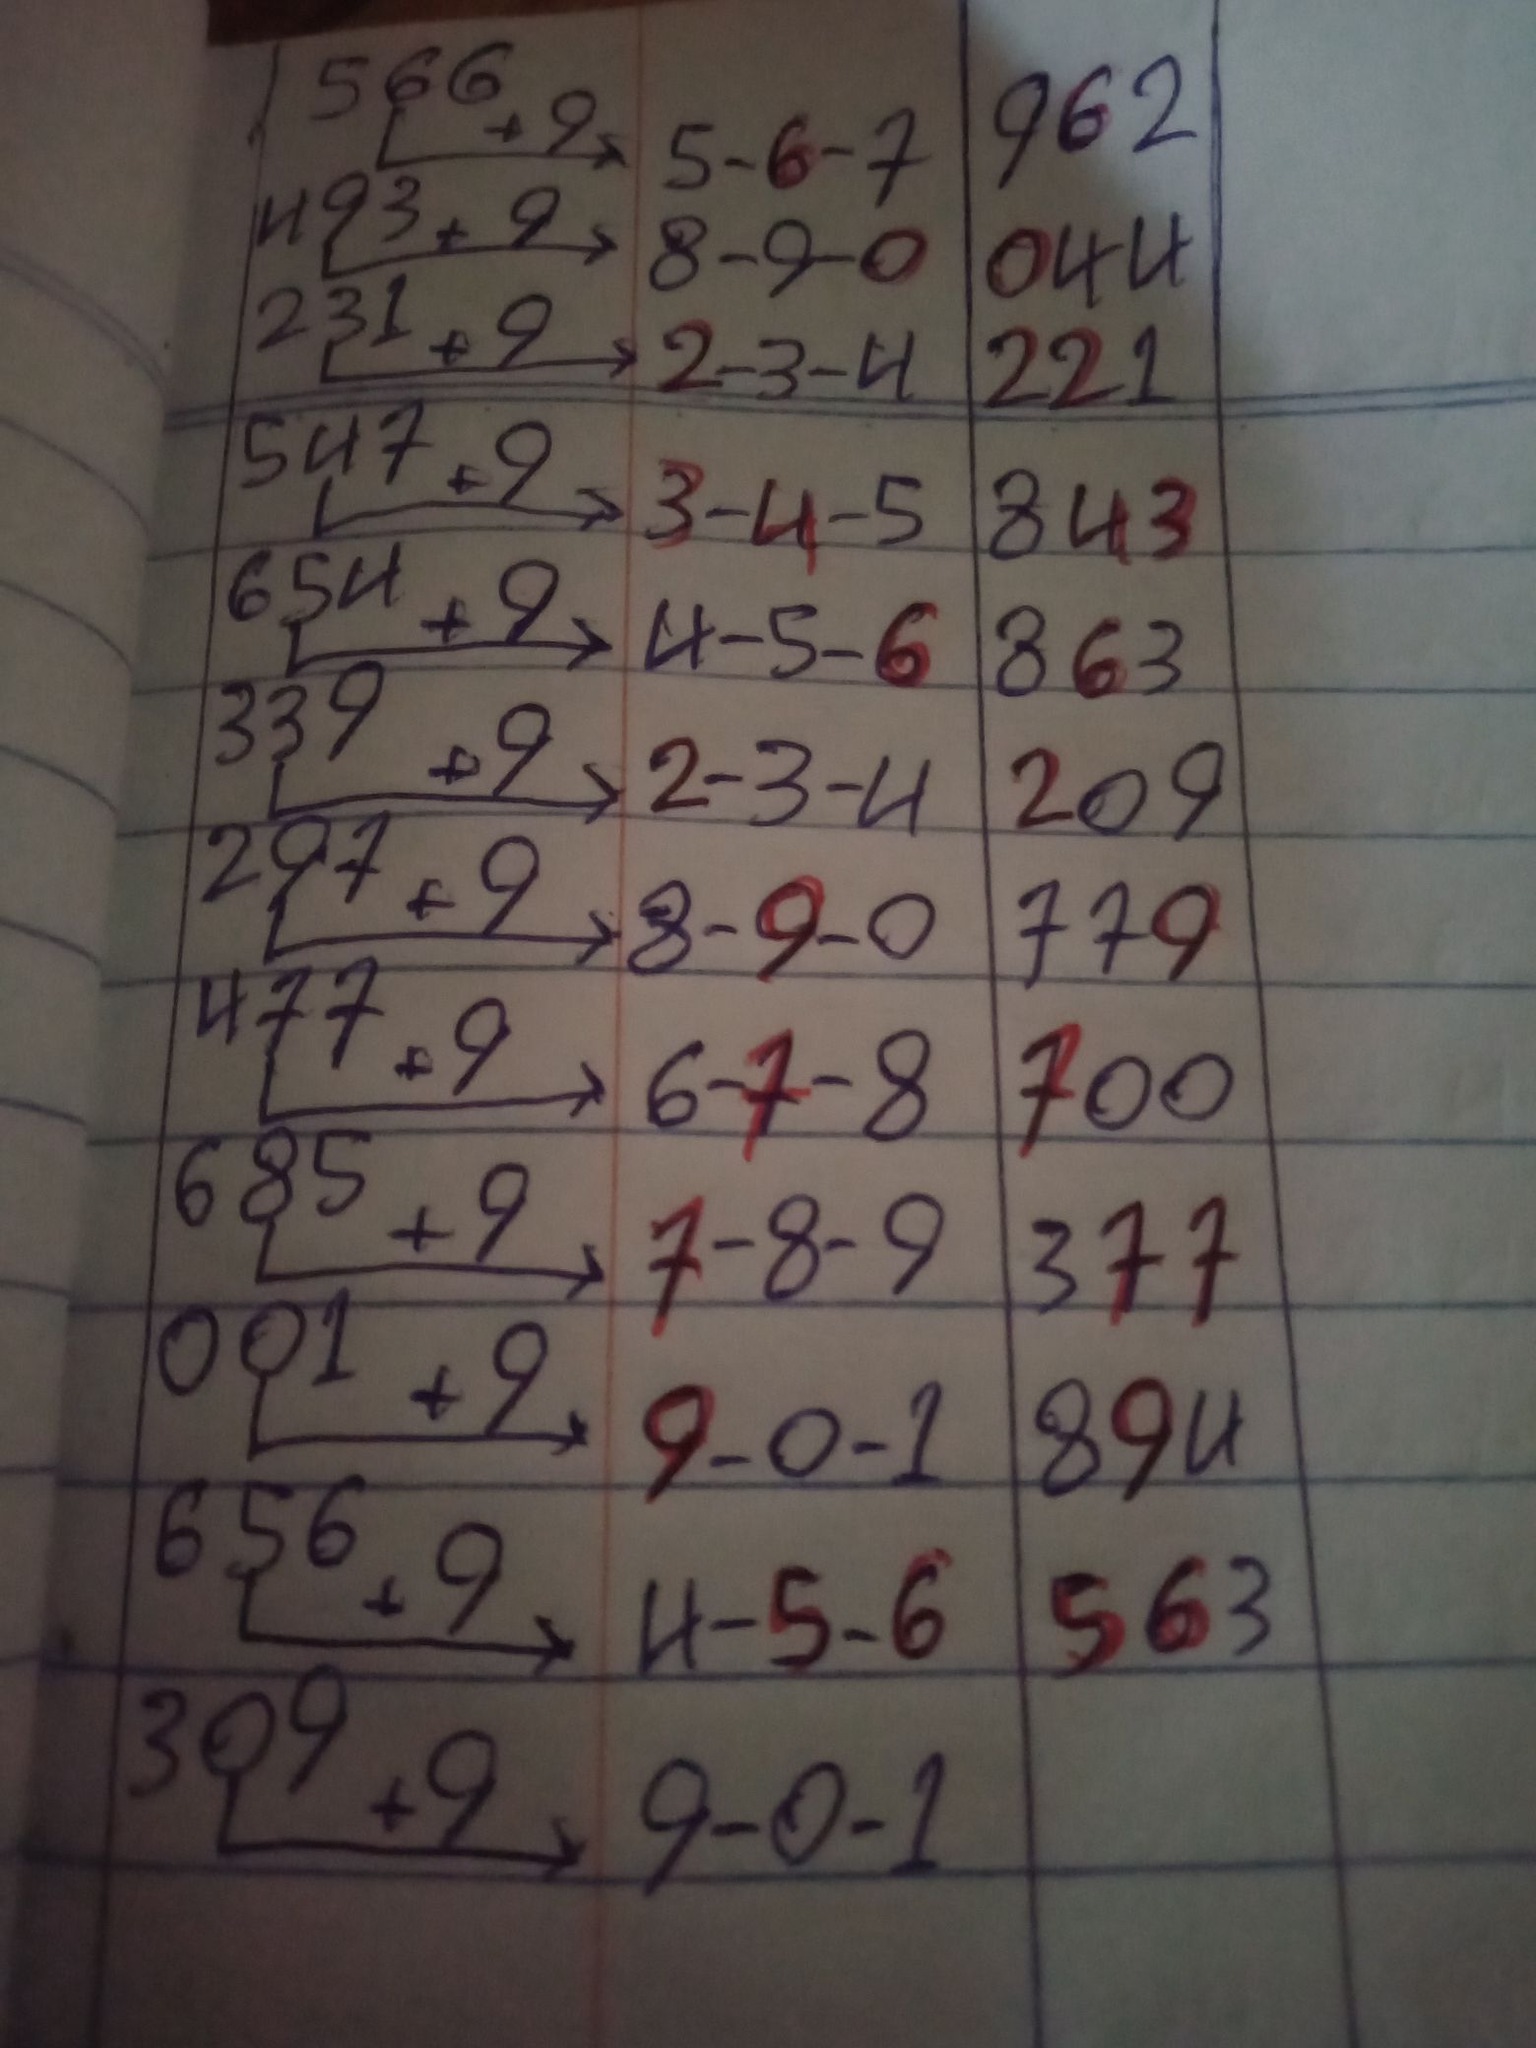 566 +9 → 5-6-7 962
493 + 9 → 8-9-0 044
231 + 9 → 2-3-4 221
547 +9 → 3-4-5 843
654 +9 → 4-5-6 863
339 +9 → 2-3-4 209
297 +9 → 8-9-0 779
477 +9 → 6-7-8 700
685 +9 → 7-8-9 377
001 +9 → 9-0-1 894
656 +9 → 4-5-6 563
309 +9 → 9-0-1